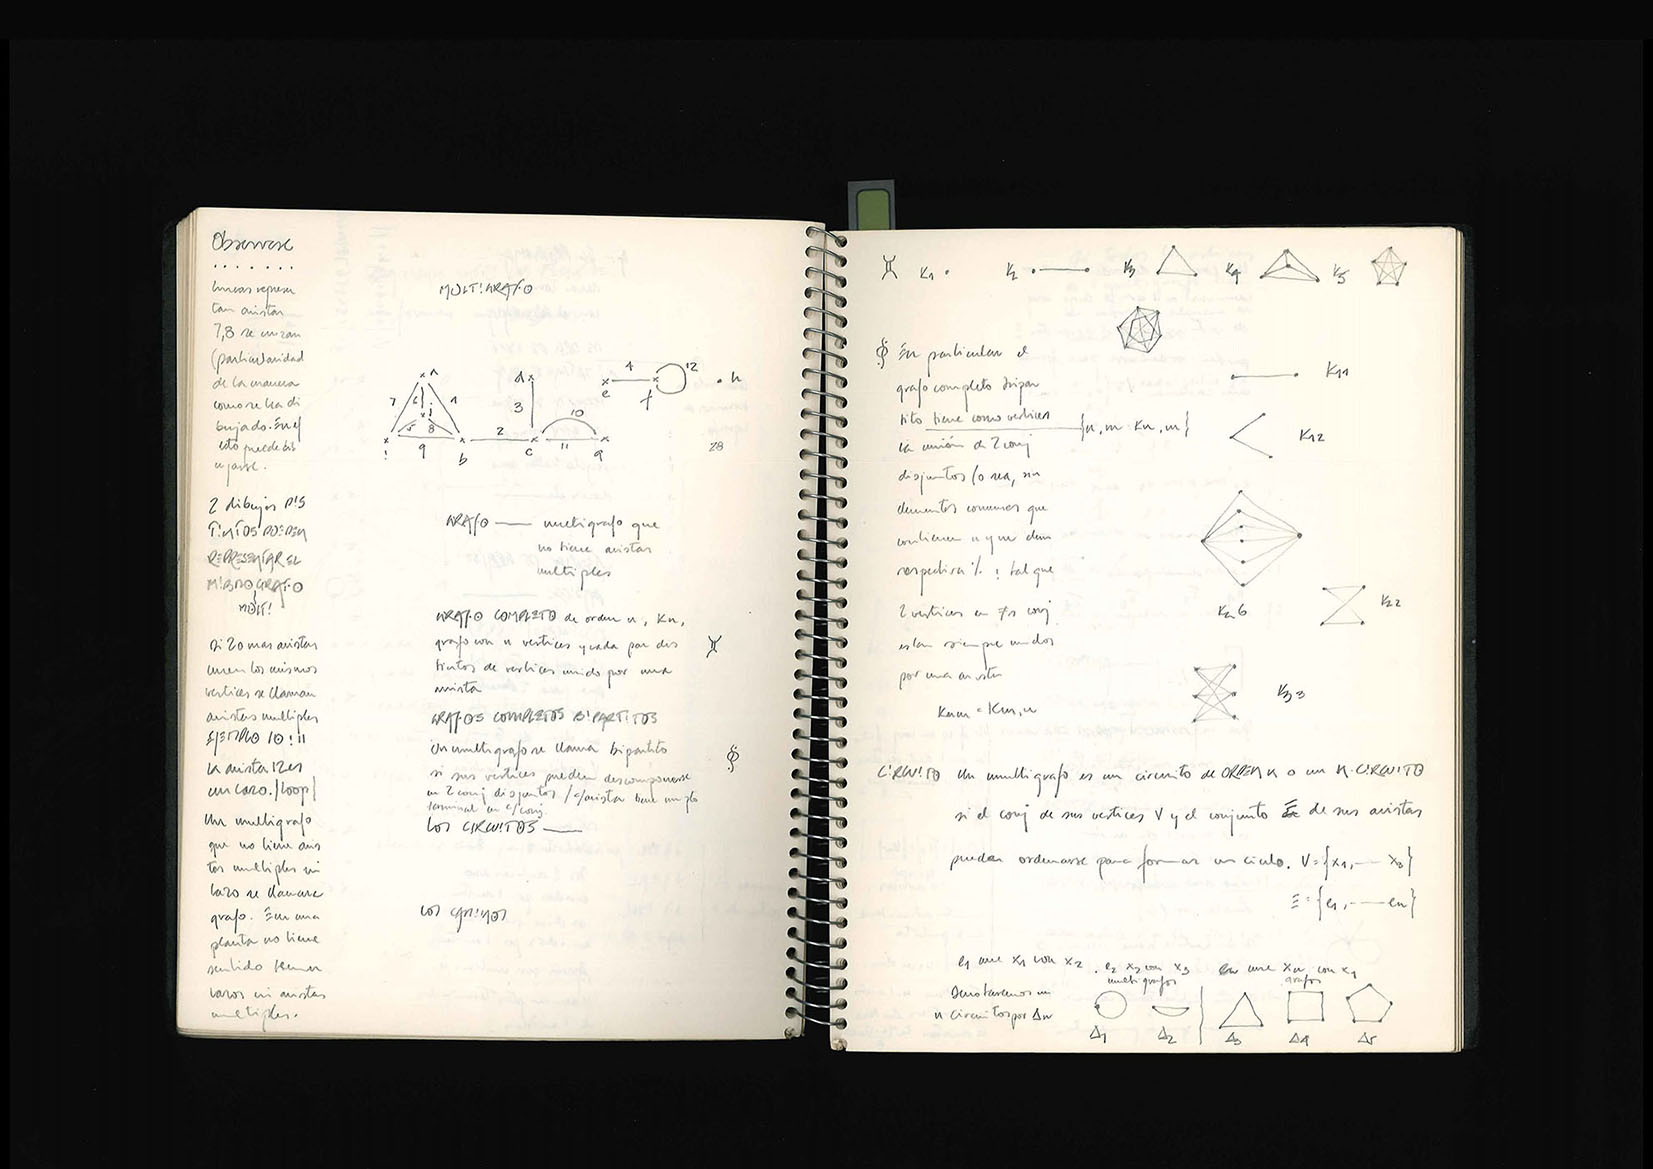 Observese
lineas represen
tan aristas
7,8 se cruzan
(particularidad
de la manera
como se ha di
bujado. En el
esto puede dib
ujarse.
2 dibujos DIS
TINTOS PUEDEN
REPRESENTAR EL
MISMO GRAFO
MULTI
si 2 o mas aristas
unen los mismos
vertices se llaman
aristas multiples
EJEMPLO 10 : 11
la arista 12 es
un lazo. (loop)
Un multigrafo
que no tiene aris
tas multiples ni
lazo se llamara
grafo. En una
planta no tiene
sentido tener
lazos ni aristas
multiples.
MULTIGRAFO
7 1 i 8 9 b
d 3 2 c 10 11 a
e 4 f 12 h
28
GRAFO — multigrafo que
no tiene aristas
multiples
GRAFO COMPLETO de orden n, Kn,
grafo con n vertices y cada par dis
tintos de vertices unido por una
arista
GRAFOS COMPLETOS BIPARTITOS
Un multigrafo se llama bipartito
si sus vertices pueden descomponerse
en 2 conj disjuntos / c/arista tiene un pto
terminal en c/conj.
LOS CIRCUITOS —
LOS CAMINOS
K1 K2 K3 K4 K5
En particular el
grafo completo bipar
tito tiene como vertices {n, m Kn,m}
la unión de 2 conj
disjuntos (o sea, sin
elementos comunes que
contienen n y m elem
respectiva% : tal que
2 vertices en ≠s conj
estan siempre unidos
por una arista
Knm = Km,n
K11
K12
K26
K22
K33
CIRCUITO Un multigrafo es un circuito de ORDEN n o un N.CIRCUITO
si el conj de sus vertices V y el conjunto E de sus aristas
puedan ordenarse para formar un ciclo. V={x1,---- xn}
E={e1,----en}
e1 une x1 con x2 , e2 x2 con x3 en une xn con x1
multigrafos grafos
Denotaremos un
n circuitos por Δn
Δ1 Δ2 Δ3 Δ4 Δ5